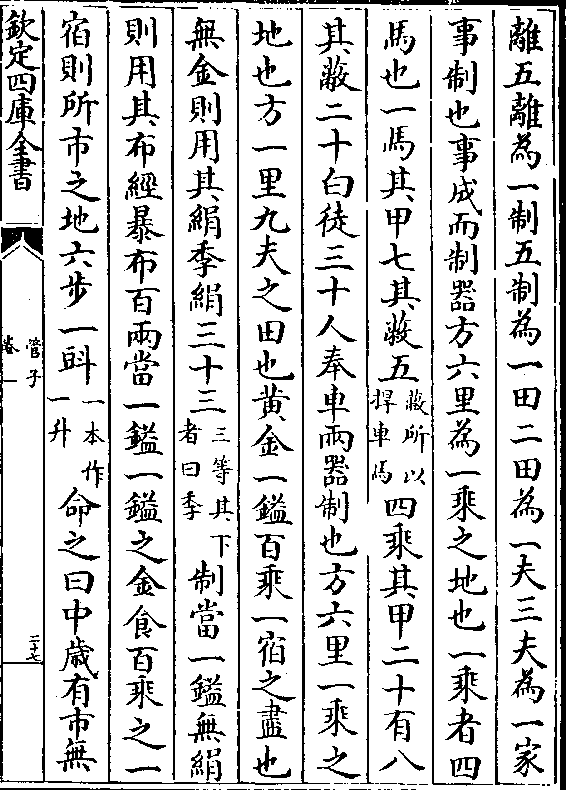 離五離為一制五制為一田二田為一夫三夫為一家
事制也事成而制器方六里為一乘之地也一乘者四
馬也一馬其甲七其蔽五蔽所以捍車馬四乘其甲二十有八
其蔽二十白徒三十人奉車兩器制也方六里一乘之
地也方一里九夫之田也黄金一鎰百乘一宿之盡也
無金則用其絹季絹三十三三等其下者曰季制當一鎰無絹
則用其布經暴布百兩當一鎰一鎰之金食百乘之一
宿則所市之地六步一㪷一本作一升命之曰中歲有市無
欽定四庫全書
管子
卷一
二十七